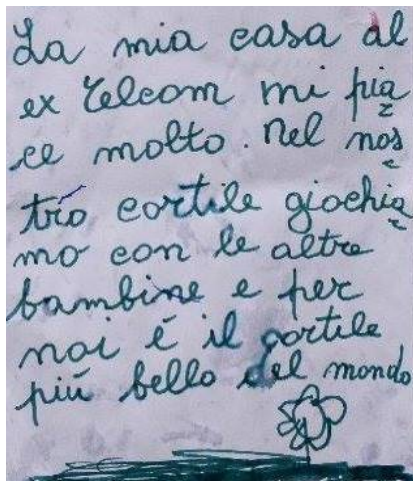 La mia casa al
ex Telecom mi pia
ce molto. Nel nos
tro cortile giochia
mo con le altre
bambine e per
noi é il cortile
più bello del mondo